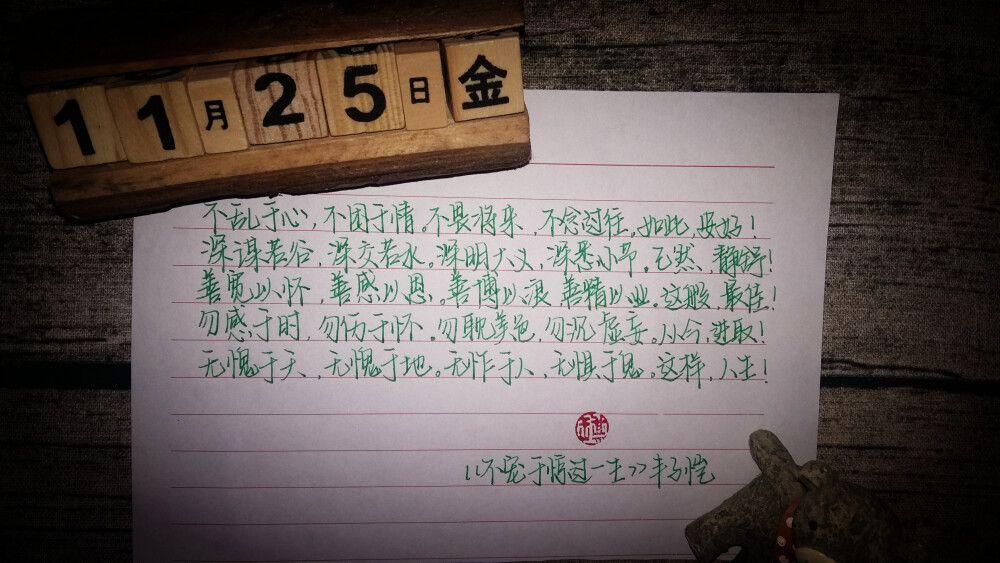 11月25日金
不乱于心,不困于情。不畏将来,不念过往。如此,安好!
深谋若谷,深交若水。深明大义,深悉小节。已然,静舒!
善宽以怀,善感以恩。善博以浪,善精以业。这般,最佳!
勿感于时,勿伤于怀。勿耽美色,勿沉虚妄。从今,进取!
无愧于天,无愧于地。无怍于人,无惧于鬼。这样,人生!
《不宠于惊过一生》丰子恺